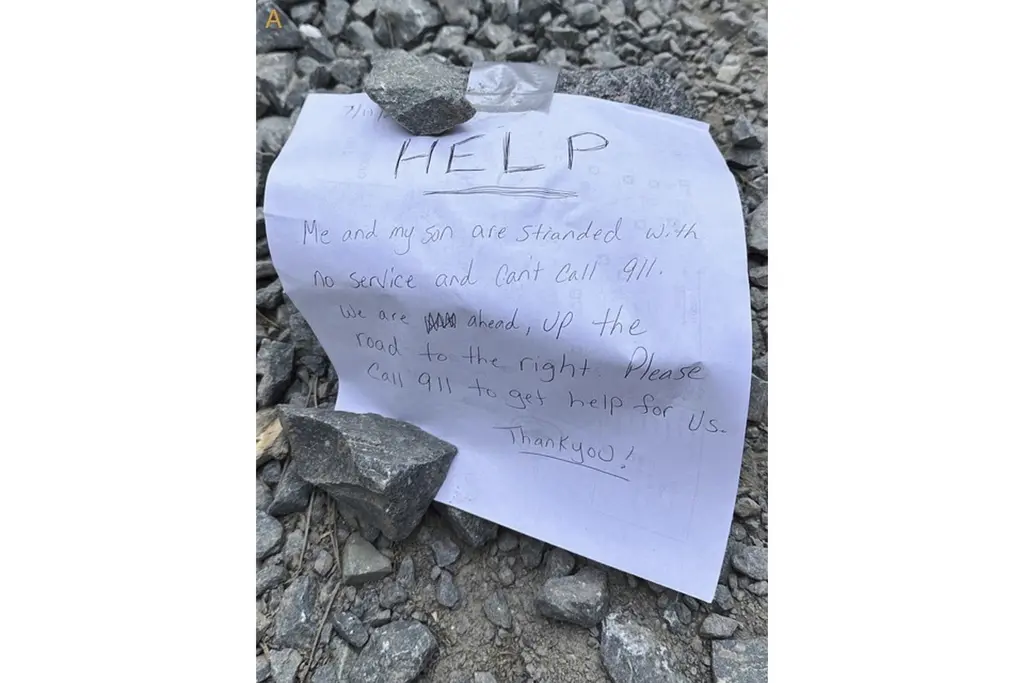 A
7/11/
HELP
Me and my son are stranded with
no service and can't call 911.
We are ahead, up the
road to the right. Please
Call 911 to get help for us.
Thankyou!